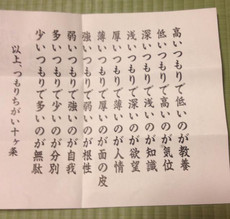 高いつもりで低いのが教養
低いつもりで高いのが気位
深いつもりで浅いのが知識
浅いつもりで深いのが欲望
厚いつもりで薄いのが人情
薄いつもりで厚いのが面の皮
強いつもりで弱いのが根性
弱いつもりで強いのが自我
多いつもりで少いのが分別
少いつもりで多いのが無駄
以上、つもりちがい十ヶ条